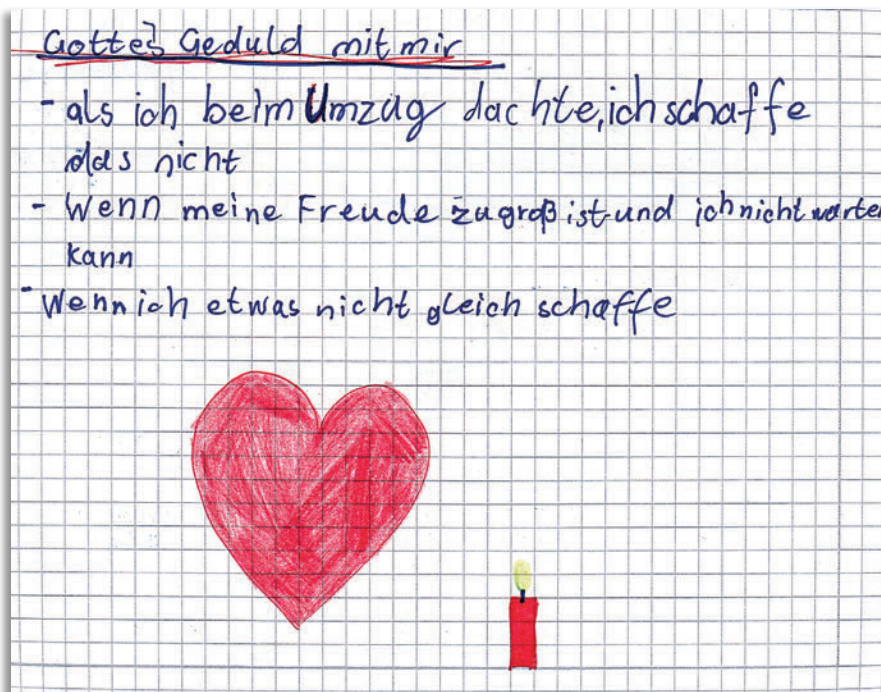 Gottes Geduld mit mir
- als ich beim Umzug dachte, ich schaffe
das nicht
- Wenn meine Freude zu groß ist und ich nicht warten
kann
- Wenn ich etwas nicht gleich schaffe